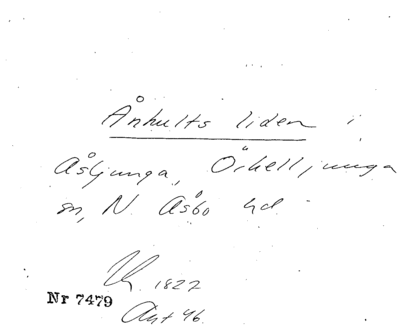 Ånhults liden i
Åsljunga, Örkelljunga
sn, N Åsbo hd
1822
Nr 7479
Akt 46